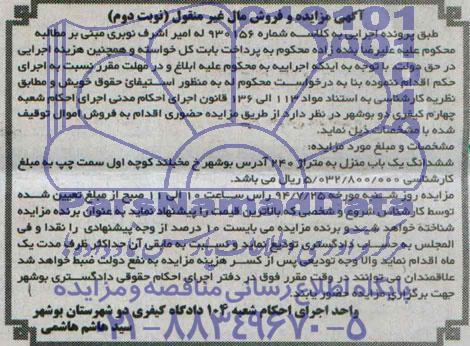 آگهی مزایده و فروش مال غیر منقول (نوبت دوم)
طبق پرونده اجرایی به کلاسه شماره ۹۳۰۱۵۶ له امیر اشرف نوبری مبنی بر مطالبه
محکوم علیه علیرضا بنده زاده محکوم به پرداخت بابت کل خواسته و همچنین هزینه اجرایی
در حق دولت با توجه به اینکه اجراییه به محکوم علیه ابلاغ و در مهلت مقرر نسبت به اجرای
حکم اقدام ننموده بنا به درخواست محکوم له به منظور استیفای حقوق خویش و مطابق
نظریه کارشناسی به استناد مواد ۱۱۳ الی ۱۳۶ قانون اجرای احکام مدنی اجرای احکام شعبه
چهارم کیفری دو بوشهر در نظر دارد از طریق مزایده حضوری اقدام به فروش اموال توقیف
شده با مشخصات ذیل نماید.
مشخصات و مبلغ مورد مزایده:
ششدانگ یک باب منزل به متراژ ۲۴۰ آدرس بوشهر خ مخبلند کوچه اول سمت چپ به مبلغ
کارشناسی ۵/۰۳۲/۸۰۰/۰۰۰ ریال می باشد.
مزایده روز شنبه مورخه ۹۴/۷/۲۵ راس ساعت ۱۰ الی ۱۱ صبح از مبلغ تعیین شده
توسط کارشناس شروع و شخصی که بالاترین قیمت را پیشنهاد نماید به عنوان برنده مزایده
شناخته خواهد شد و برنده مزایده می بایست ۱۰ درصد از وجه پیشنهادی را نقدا و فی
المجلس به حساب دادگستری تودیع نماید و نسبت به مابقی آن حداکثر ظرف مدت یک
ماه اقدام نماید والا وجه تودیعی پس از کسر هزینه مزایده به نفع دولت ضبط خواهد شد
علاقمندان می توانند در وقت مقرر فوق در دفتر اجرای احکام حقوقی دادگستری بوشهر
جهت برگزاری مزایده حضور یابند.
واحد اجرای احکام شعبه ۱۰۴ دادگاه کیفری دو شهرستان بوشهر
سید هاشم هاشمی
ParsNamadData
پایگاه اطلاع رسانی مناقصه و مزایده
۰۲۱-۸۸۳۴۹۶۷۰-۵